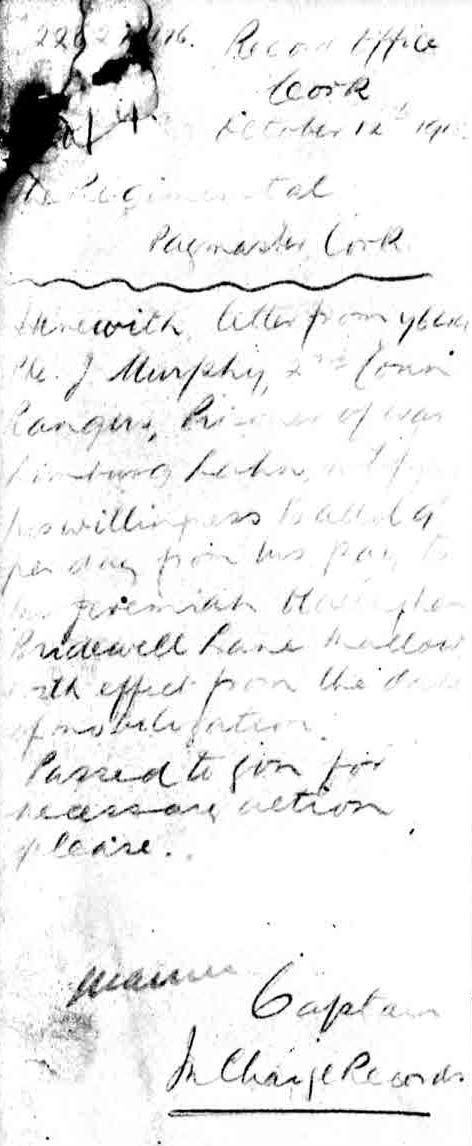 Record Office
Cork
October 12th
The Regimental
Paymaster Cork
Herewith letter from
Pte. J Murphy, 2nd Conn
Rangers, Prisoner of War
Limburg Lahn,
his willingness to
per day from his pay to
Jeremiah
Bridewell Lane Mallow
with effect from the date
of mobilization.
Passed to you for
necessary action
please.
Captain
In Charge Records